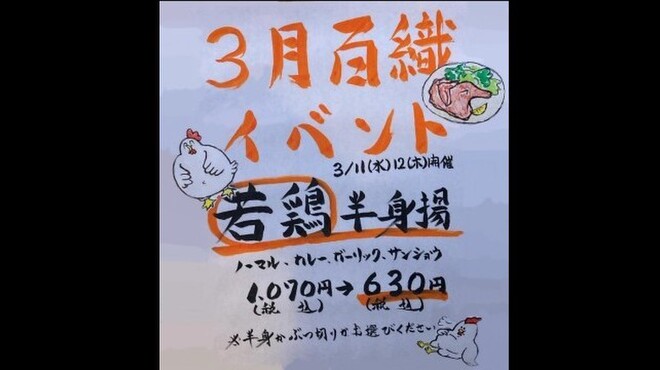 3月百織
イベント
3/11(水)12(木)開催
若鶏半身揚
ノーマル、カレー、ガーリック、サンショウ
1,070円→630円
(税込) (税込)
※半身かぶつ切りかお選びください